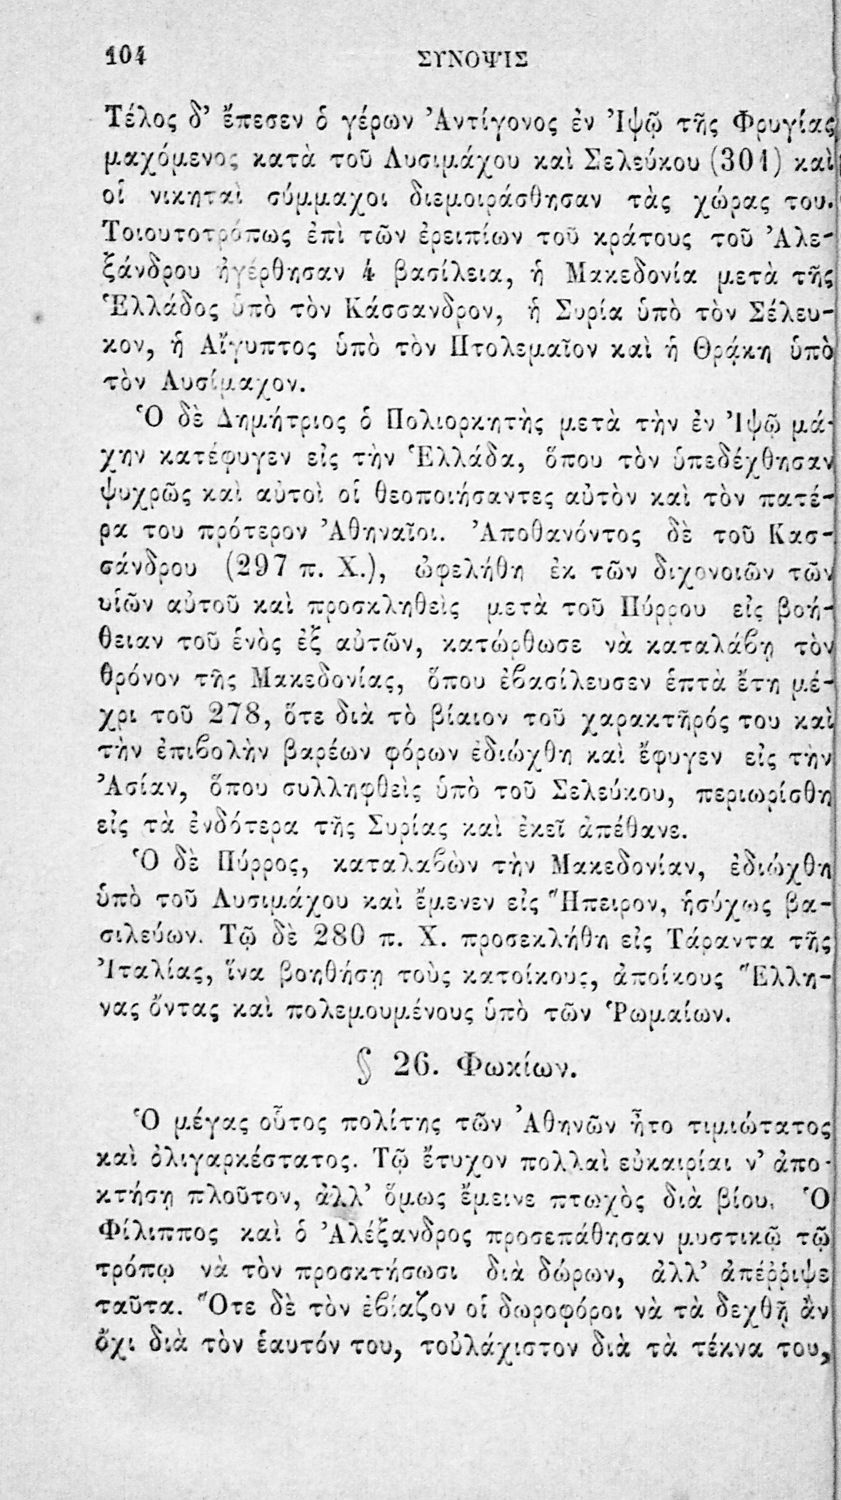 104 ΣΥΝΟΨΙΣ
Τέλος δ’ ἔπεσεν ὁ γέρων Ἀντίγονος ἐν Ἰψῷ τῆς Φρυγίας
μαχόμενος κατὰ τοῦ Λυσιμάχου καὶ Σελεύκου (301) καὶ
οἱ νικηταὶ σύμμαχοι διεμοιράσθησαν τὰς χώρας του.
Τοιουτοτρόπως ἐπὶ τῶν ἐρειπίων τοῦ κράτους τοῦ Ἀλε-
ξάνδρου ἠγέρθησαν 4 βασίλεια, ἡ Μακεδονία μετὰ τῆς
Ἑλλάδος ὑπὸ τὸν Κάσσανδρον, ἡ Συρία ὑπὸ τὸν Σέλευ-
κον, ἡ Αἴγυπτος ὑπὸ τὸν Πτολεμαῖον καὶ ἡ Θράκη ὑπὸ
τὸν Λυσίμαχον.
Ὁ δὲ Δημήτριος ὁ Πολιορκητὴς μετὰ τὴν ἐν Ἰψῷ μά-
χην κατέφυγεν εἰς τὴν Ἑλλάδα, ὅπου τὸν ὑπεδέχθησαν
ψυχρῶς καὶ αὐτοὶ οἱ θεοποιήσαντες αὐτὸν καὶ τὸν πατέ-
ρα του πρότερον Ἀθηναῖοι. Ἀποθανόντος δὲ τοῦ Κασ-
σάνδρου (297 π. Χ.), ὠφελήθη ἐκ τῶν διχονοιῶν τῶν
υἱῶν αὐτοῦ καὶ προσκληθεὶς μετὰ τοῦ Πύρρου εἰς βοή-
θειαν τοῦ ἑνὸς ἐξ αὐτῶν, κατώρθωσε νὰ καταλάβῃ τὸν
θρόνον τῆς Μακεδονίας, ὅπου ἐβασίλευσεν ἑπτὰ ἔτη μέ-
χρι τοῦ 278, ὅτε διὰ τὸ βίαιον τοῦ χαρακτῆρός του καὶ
τὴν ἐπιβολὴν βαρέων φόρων ἐδιώχθη καὶ ἔφυγεν εἰς τὴν
Ἀσίαν, ὅπου συλληφθεὶς ὑπὸ τοῦ Σελεύκου, περιωρίσθη
εἰς τὰ ἐνδότερα τῆς Συρίας καὶ ἐκεῖ ἀπέθανε.
Ὁ δὲ Πύρρος, καταλαβὼν τὴν Μακεδονίαν, ἐδιώχθη
ὑπὸ τοῦ Λυσιμάχου καὶ ἔμενεν εἰς Ἤπειρον, ἡσύχως βα-
σιλεύων. Τῷ δὲ 280 π. Χ. προσεκλήθη εἰς Τάραντα τῆς
Ἰταλίας, ἵνα βοηθήσῃ τοὺς κατοίκους, ἀποίκους Ἕλλη-
νας ὄντας καὶ πολεμουμένους ὑπὸ τῶν Ῥωμαίων.
§ 26. Φωκίων.
Ὁ μέγας οὗτος πολίτης τῶν Ἀθηνῶν ἦτο τιμιώτατος
καὶ ὀλιγαρκέστατος. Τῷ ἔτυχον πολλαὶ εὐκαιρίαι ν’ ἀπο-
κτήσῃ πλοῦτον, ἀλλ’ ὅμως ἔμεινε πτωχὸς διὰ βίου. Ὁ
Φίλιππος καὶ ὁ Ἀλέξανδρος προσεπάθησαν μυστικῷ τῷ
τρόπῳ νὰ τὸν προσκτήσωσι διὰ δώρων, ἀλλ’ ἀπέῤῥιψε
ταῦτα. Ὅτε δὲ τὸν ἐβίαζον οἱ δωροφόροι νὰ τὰ δεχθῇ ἂν
ὄχι διὰ τὸν ἑαυτόν του, τοὐλάχιστον διὰ τὰ τέκνα του,